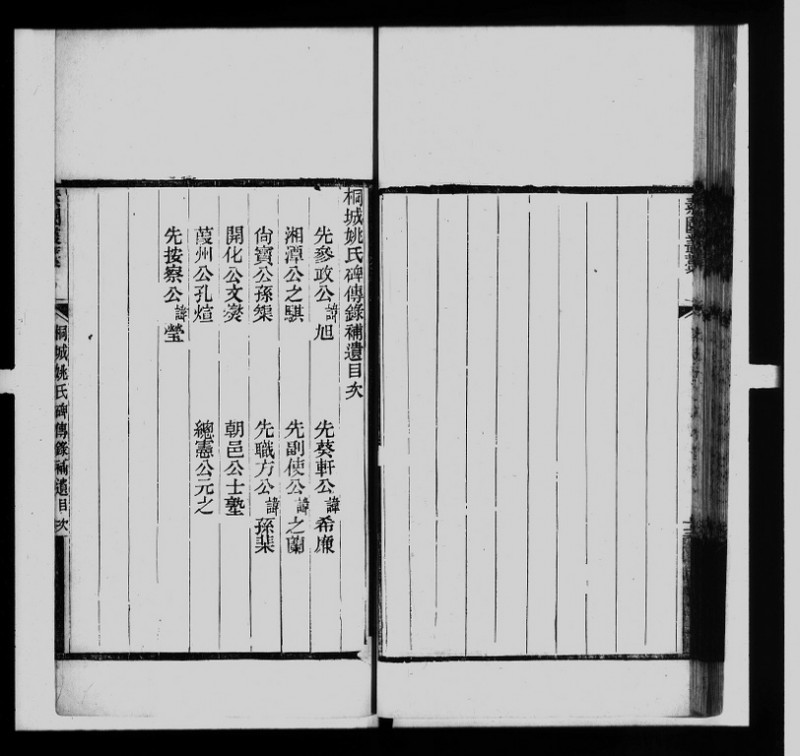 桐城姚氏碑傳錄補遺目次
先參政公諱旭
先葵軒公諱希廉
湘潭公之騏
先副使公諱之蘭
尙寶公孫榘
先職方公諱孫棐
開化公文燮
朝邑公士塾
葭州公孔煊
總憲公元之
先按察公諱瑩
桐城姚氏碑傳錄補遺目次